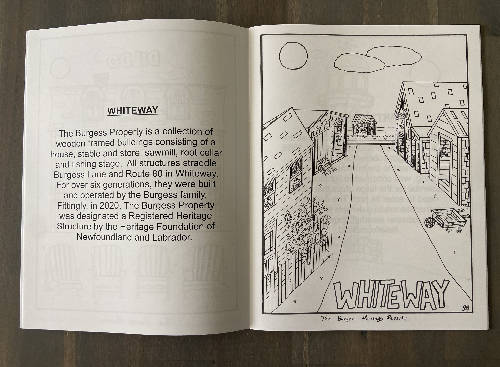 WHITEWAY
The Burgess Property is a collection of
wooden framed buildings consisting of a
house, stable and store, sawmill, root cellar
and fishing stage. All structures straddle
Burgess Lane and Route 80 in Whiteway.
For over six generations, they were built
and operated by the Burgess family.
Fittingly, in 2020, The Burgess Property
was designated a Registered Heritage
Structure by the Heritage Foundation of
Newfoundland and Labrador.
WHITEWAY
The